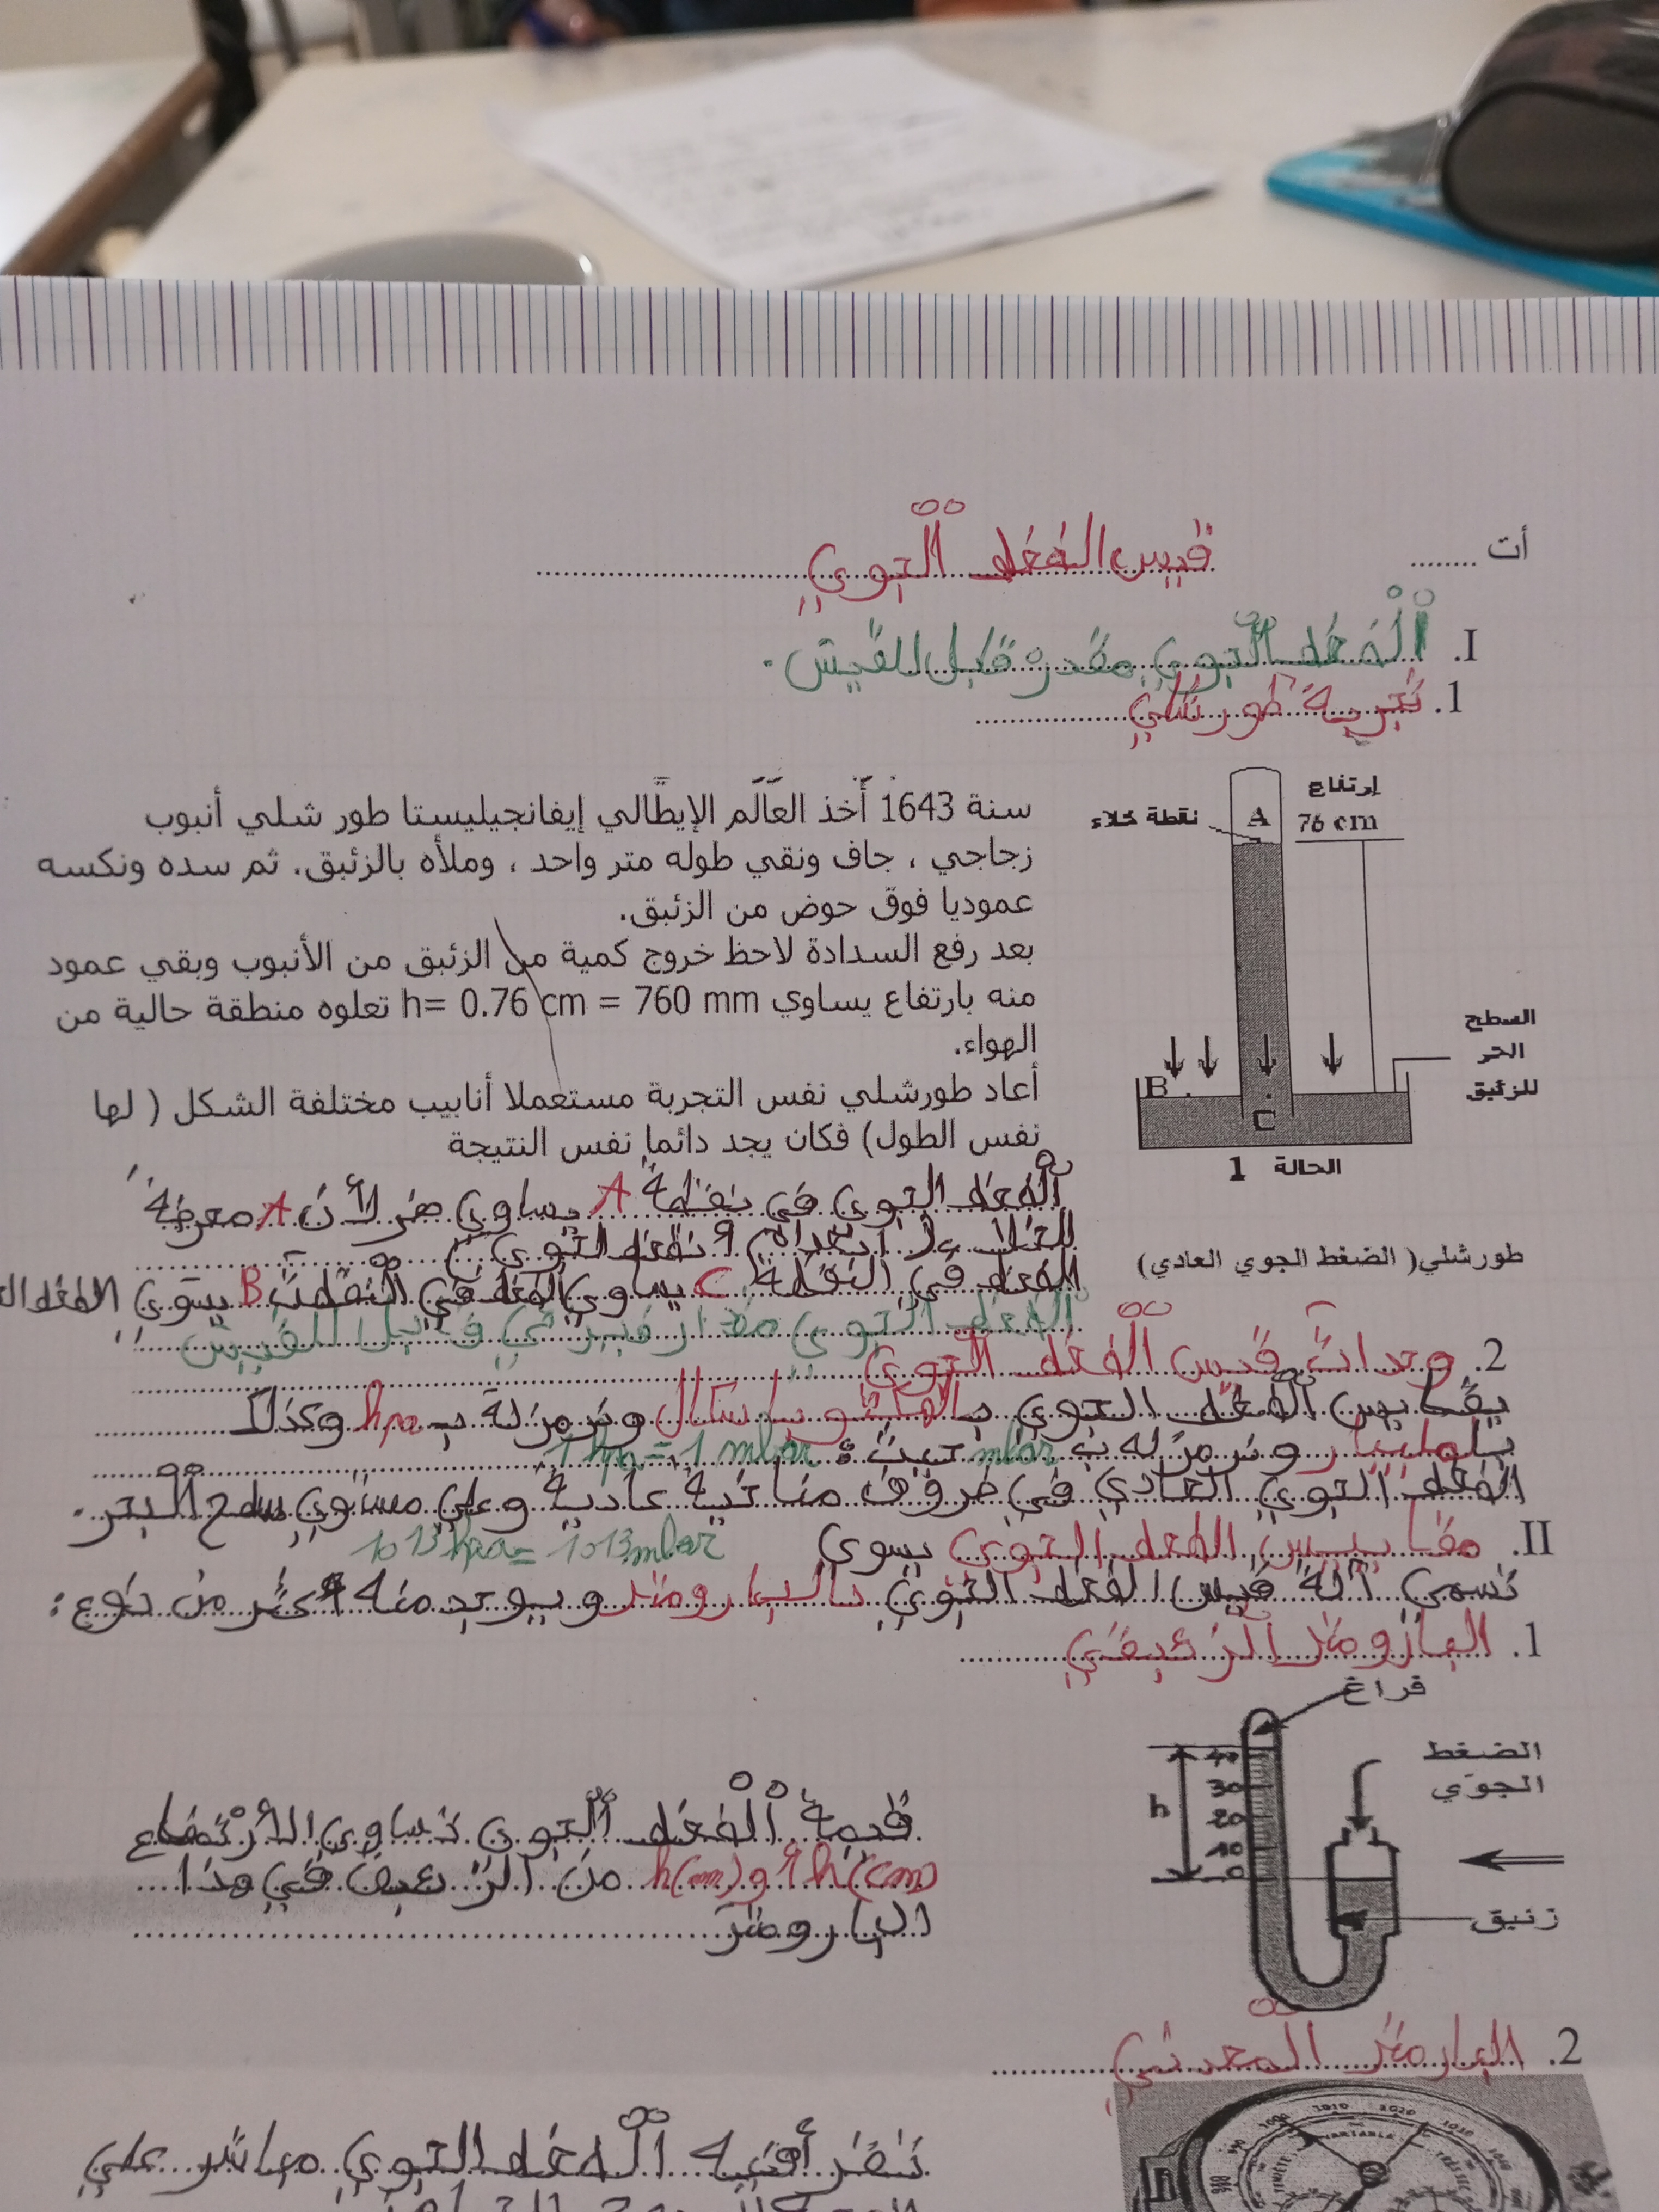 أت ........
قيس الضغط الجوي
I. الضغط الجوي مقدره قابل للقيس.
1. تجربة طورشلي
إرتفاع
76 cm
نقطة خلاء
A
سنة 1643 أخذ العالم الإيطالي إيفانجيليستا طور شلي أنبوب
زجاجي ، جاف ونقي طوله متر واحد ، وملأه بالزئبق. ثم سده ونكسه
عموديا فوق حوض من الزئبق.
بعد رفع السدادة لاحظ خروج كمية من الزئبق من الأنبوب وبقي عمود
منه بارتفاع يساوي h= 0.76 cm = 760 mm تعلوه منطقة حالية من
الهواء.
أعاد طورشلي نفس التجربة مستعملا أنابيب مختلفة الشكل ( لها
نفس الطول) فكان يجد دائما نفس النتيجة
السطح
الحر
للزئبق
B
C
الحالة 1
طورشلي( الضغط الجوي العادي)
الضغط الجوي في نقطة A يساوي صفر لأن A معرضة
الضغط في النقطة C يساوي الضغط في النقطة B يسوي الضغط
الضغط الجوي مقدار فيزيائي قابل للقيس
2. وحدات قيس الضغط الجوي
يقاس الضغط الجوي بالهكتوباسكال ونرمز له ب hpa وكذلك
بلمليبار ونرمز له ب mbar حيث : 1 hpa = 1 mbar
الضغط الجوي العادي في ظروف مناخية عادية وعلي مستوي سطح البحر.
II. مقاييس الضغط الجوي يسوي 1013 hpa = 1013 mbar
تسمي آلة قيس الضغط الجوي بالبارومتر ويوجد منه أكثر من نوع :
1. البارومتر الزئبقي
فراغ
الضغط
الجوّي
h
40
30
20
10
0
زئبق
قيمة الضغط الجوي تساوي الأرتفاع
h(cm) أو h(m) من الزئبق في هذا
البارومتر
2. البارمتر المعدني
نقرأ قيمة الضغط الجوي مباشر علي
1000 1010 1020 1030
VARIABLE
TRES SEC